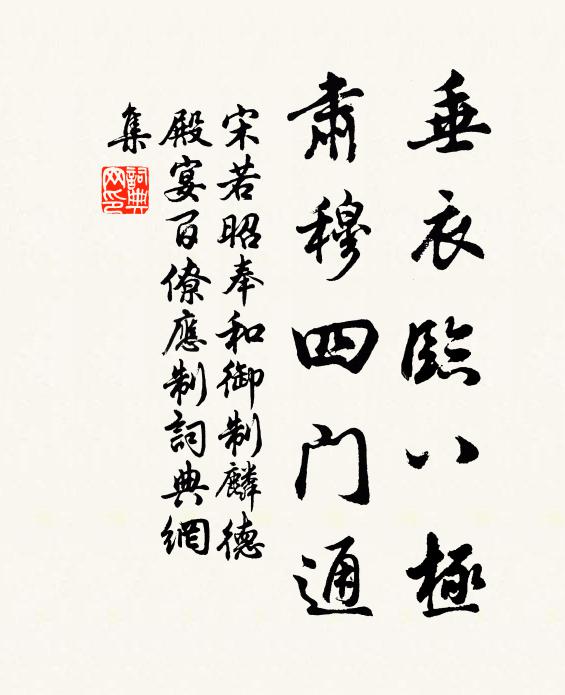 垂衣臨八極
肅穆四门通
宋若昭奉和御制麟德
殿宴百僚應制詞典網
集
詞典网印